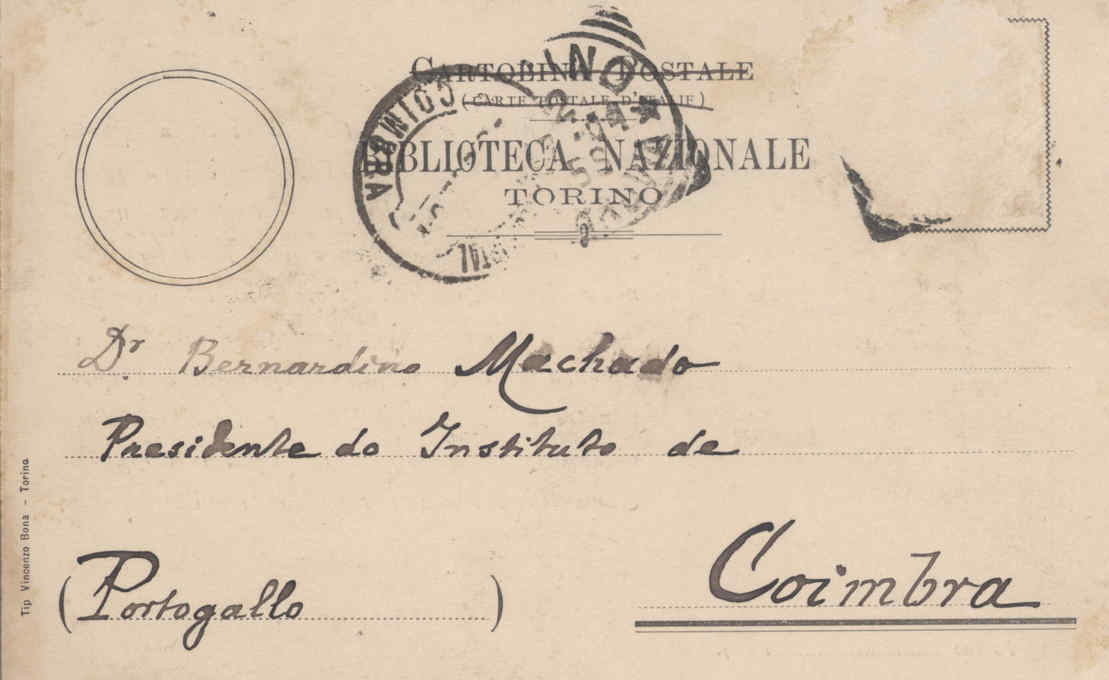 CARTOLINA POSTALE
(CARTE POSTALE D'ITALIE)
BIBLIOTECA NAZIONALE
TORINO
COIMBRA
Dr Bernardino Machado
Presidente do Instituto de
Coimbra
(Portogallo)
Tip Vincenzo Bona - Torino.